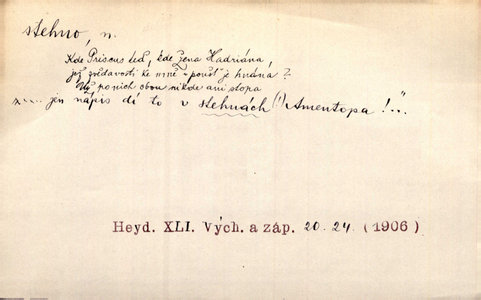 stehno, n.
Kde Priscus teď, kde žena Hadriána,
jež zvědavostí ke mně v poušť je hnána?
Už po nich obou nikde ani stopa
..... jen nápis dí to v stehnách (!) Amentopa!“..
Heyd. XLI. Vých. a záp. 20. 24. (1906)